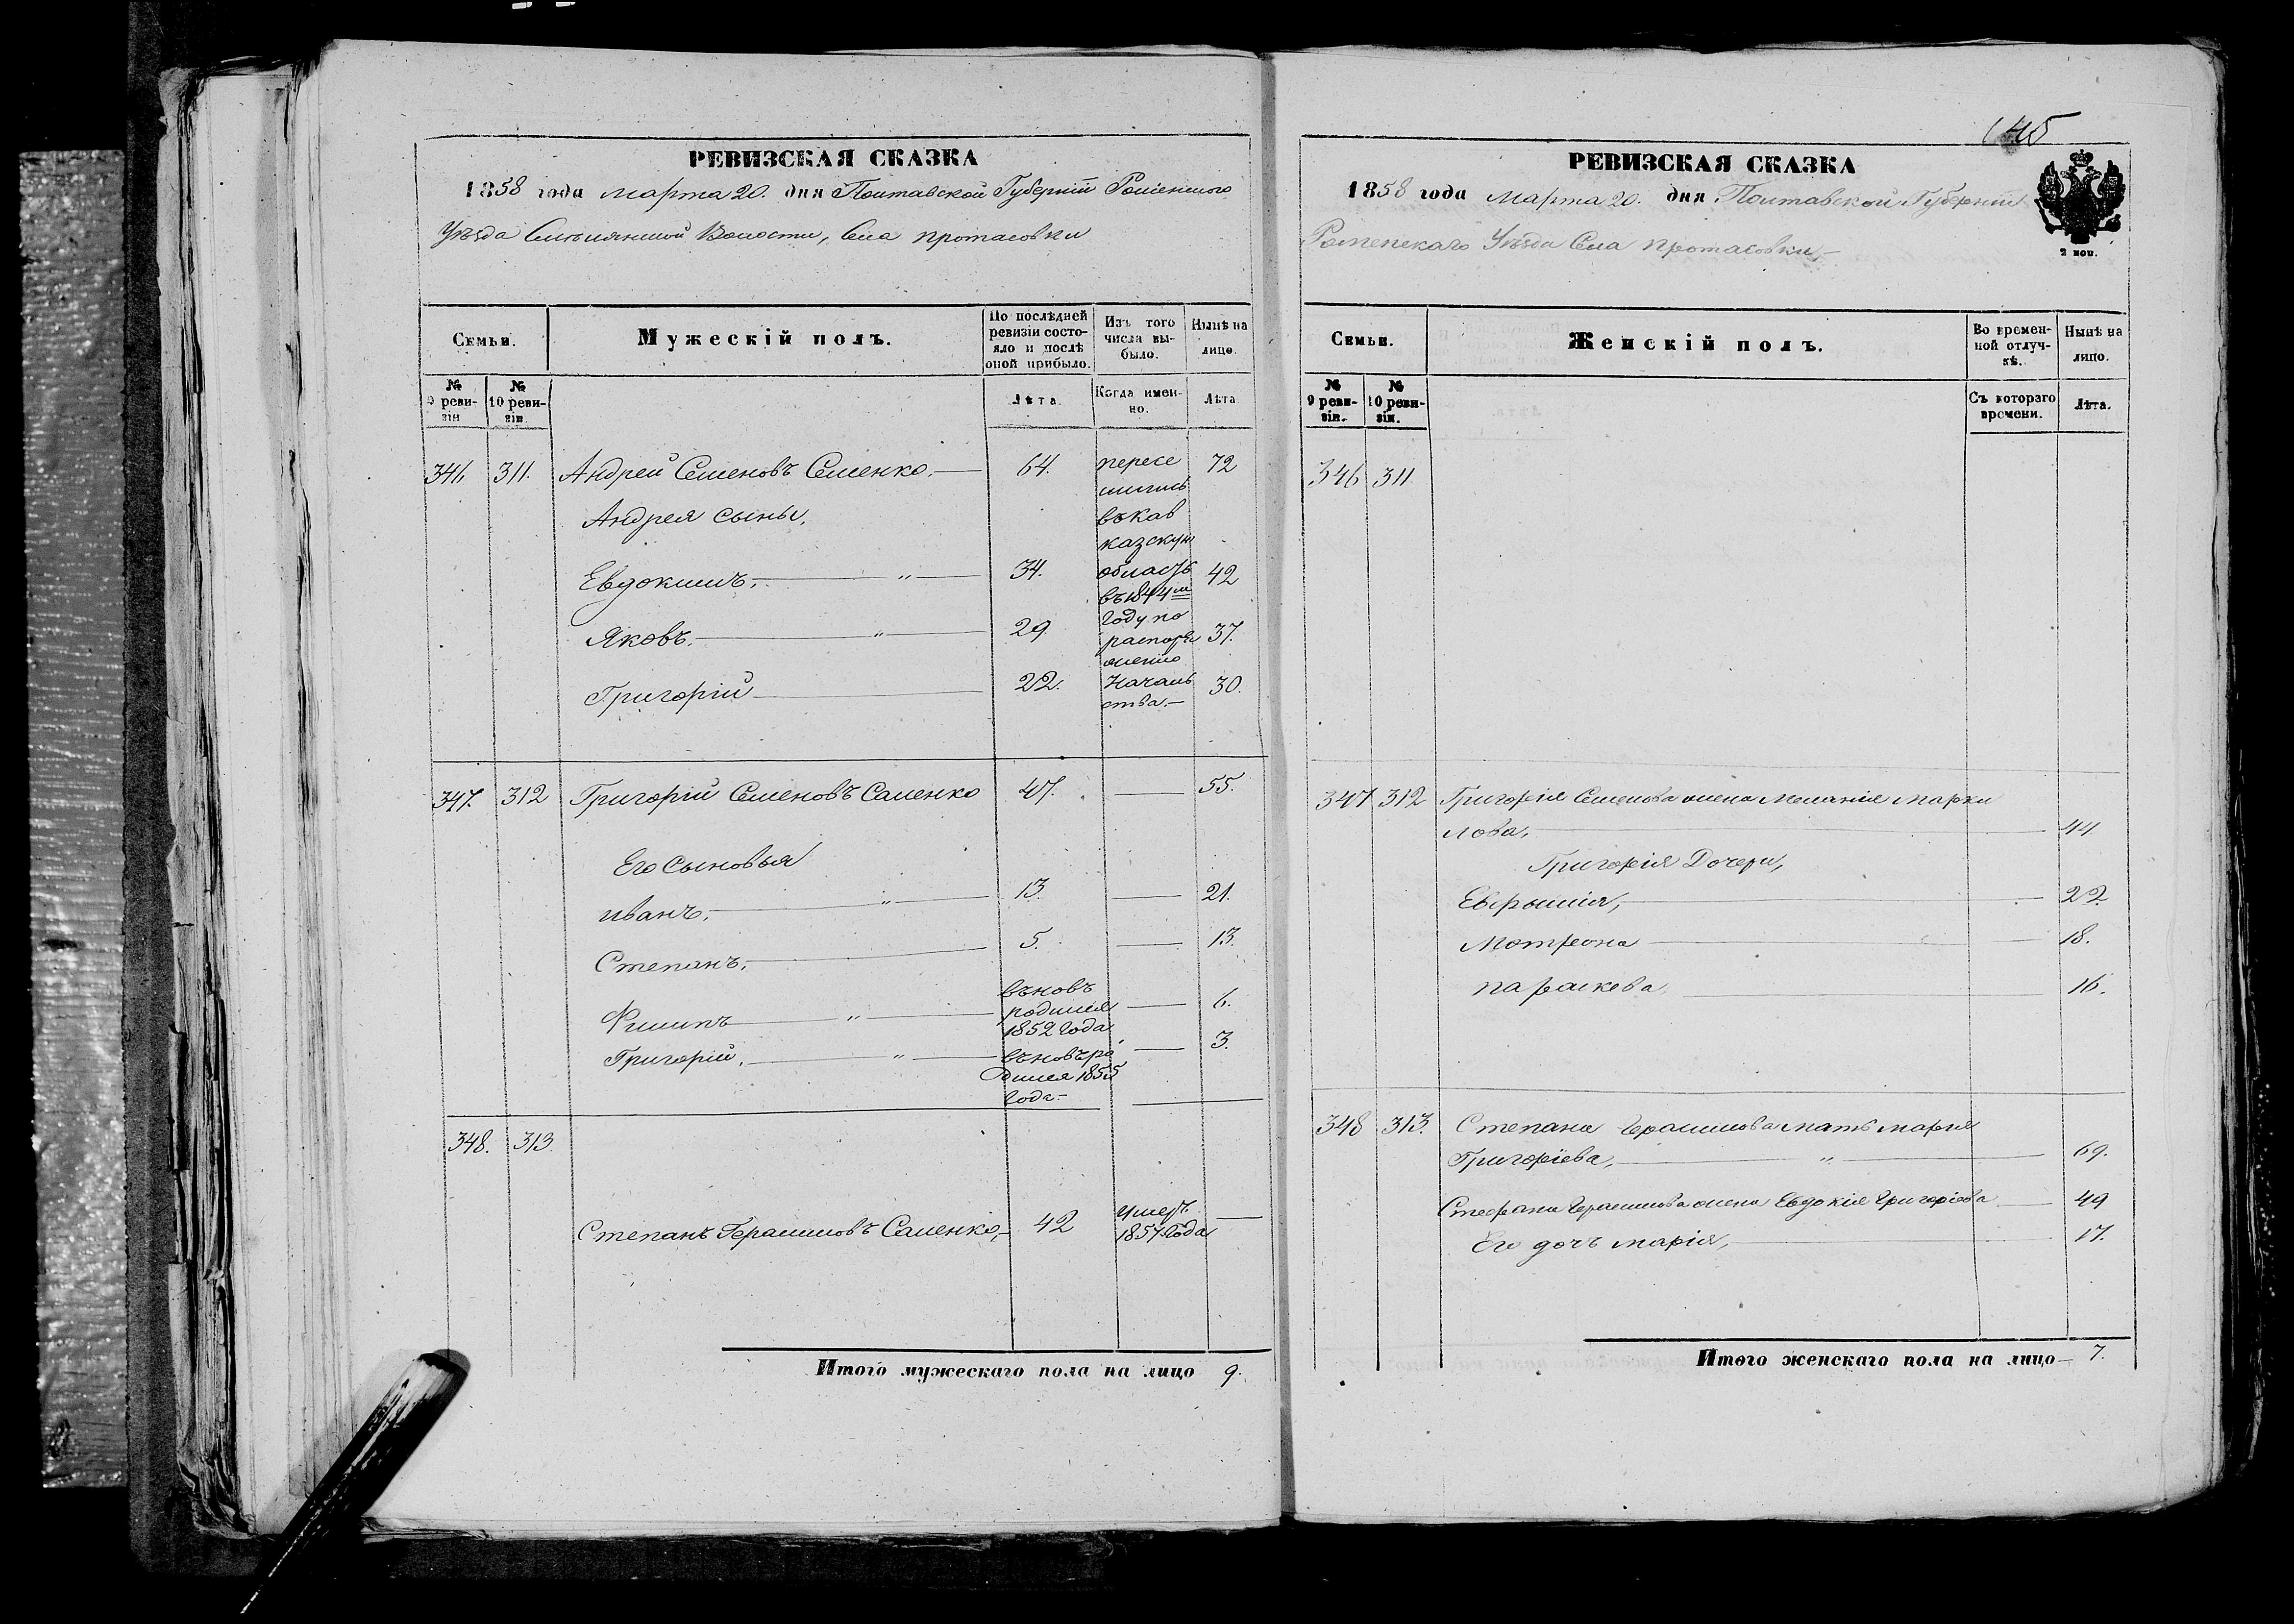 РЕВИЗСКАЯ СКАЗКА
1858 года Марта 20. дня Полтавской Губерніи Роменского
Уѣзда Смѣлянской Волости, Села Протасовки
Семьи.
Мужескій полъ.
По послѣдней ревизіи состояло и послѣ оной прибыло.
Изъ того числа выбыло.
Нынѣ на лицо.
№ 9 ревизіи
№ 10 ревизіи.
Лѣта.
Когда именно.
Лѣта
346. 311. Андрей Семеновъ Семенко. 64. 72
пересе
лились
въ Кав
казскую
область
въ 1844 м
году по
распоря
жению
Началь
ства.—
Андрея сыны,
Евдокимъ, " 34. 42
Яковъ, " 29. 37.
Григорій 22. 30.
347. 312 Григорій Семеновъ Саменко 47. — 55.
Его сыновья
Иванъ, " 13. — 21.
Степанъ, 5. — 13.
Филипъ " вьновъ родился 1852 года — 6.
Григорій, " вьновъ родился 1855 года — 3.
348. 313.
Степанъ Герасимовъ Саменко, 42 умеръ 1857 года —
Итого мужескаго пола на лицо 9.
145
РЕВИЗСКАЯ СКАЗКА
1858 года Марта 20. дня Полтавской Губерніи
Роменскаго Уѣзда Села Протасовки,—
2 коп.
Семьи.
Женскій полъ.
Во временной отлучкѣ.
Нынѣ на лицо.
№ 9 ревизіи.
№ 10 ревизіи.
Съ котораго времени.
Лѣта.
346 311
347 312 Григорія Семенова жена Меланія Марки
лова, 44
Григорія Дочери,
Евфимія, 22.
Мотрона 18.
Параскева 16.
348 313. Степана Герасимова мать Мария
Григоріева, " 69.
Стефана Герасимова жена Евдокія Григоріева 49
Его дочь Марія, 17.
Итого женскаго пола на лицо— 7.